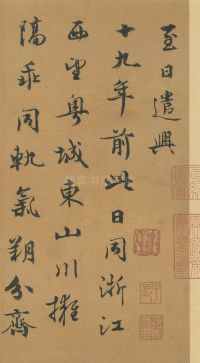 至日遣興
十九年前此日同浙江
西望粤城東山川擁
隔乖同軌氣朔分齊